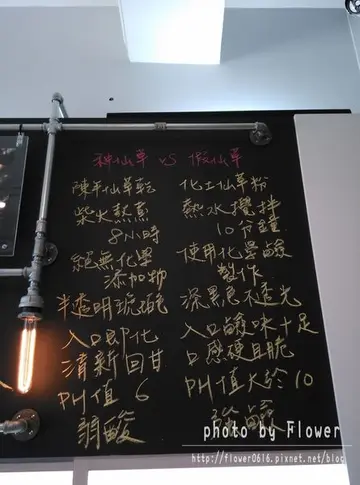 神仙草 VS 假仙草
陳年仙草乾
柴火熬煮
8小時
絕無化學
添加物
半透明琥珀
入口即化
清新回甘
PH值 6
弱酸
化工仙草粉
熱水攪拌
10分鐘
使用化學鹼
製作
深黑色不透光
入口鹼味十足
口感硬且脆
PH值大於10
強鹼
photo by Flower
http://flower0616.pixnet.net/blog